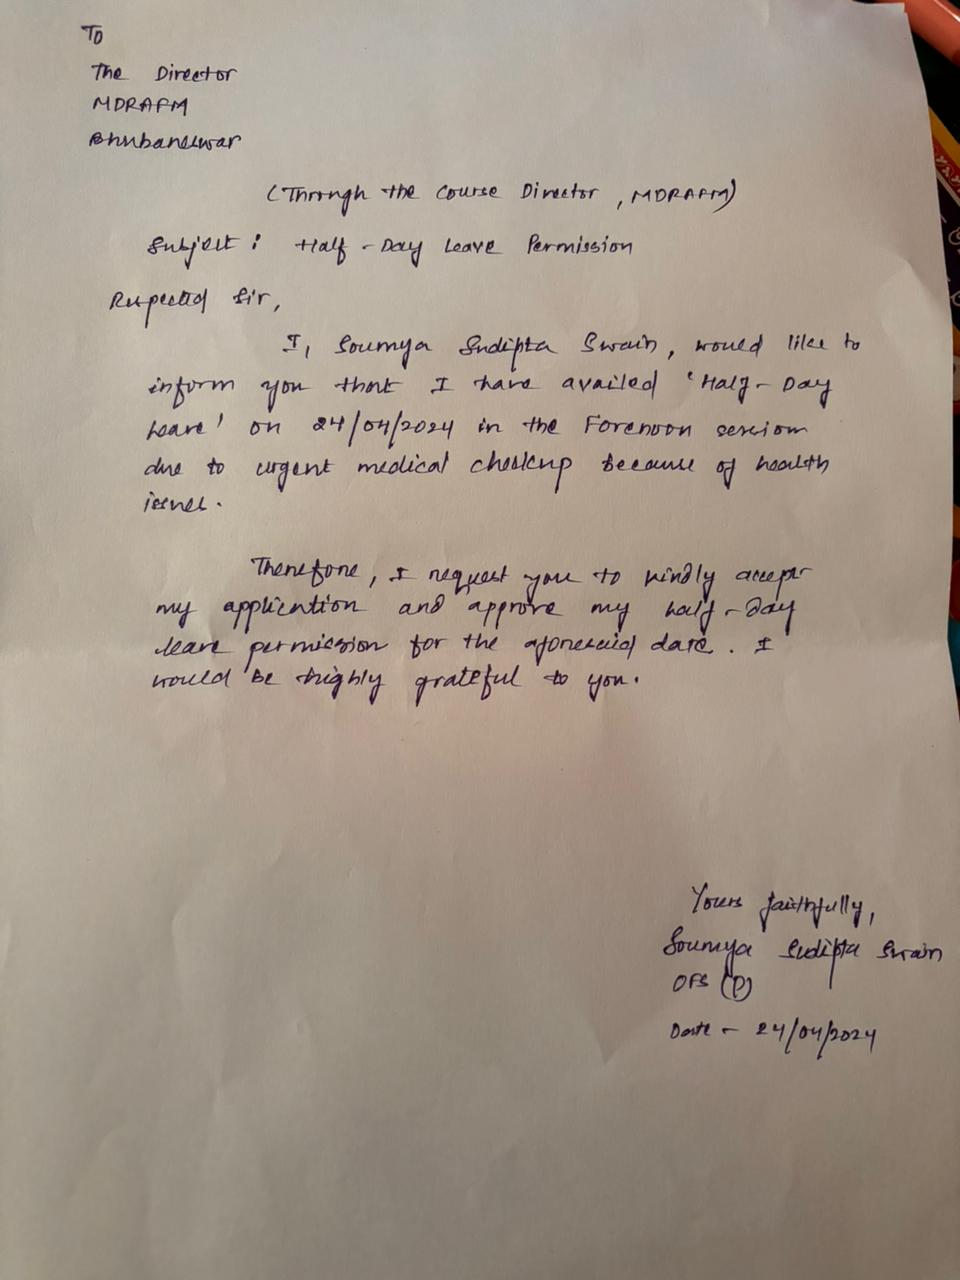 To
The Director
MDRAFM
Bhubaneswar
(Through the Course Director, MDRAFM)
Subject: Half-Day Leave Permission
Respected Sir,
I, Soumya Sudipta Swain, would like to
inform you that I have availed 'Half-Day
Leave' on 24/04/2024 in the Forenoon session
due to urgent medical checkup because of health
issues.
Therefore, I request you to kindly accept
my application and approve my half-day
leave permission for the aforesaid date. I
would be highly grateful to you.
Yours faithfully,
Soumya Sudipta Swain
OFS (P)
Date - 24/04/2024